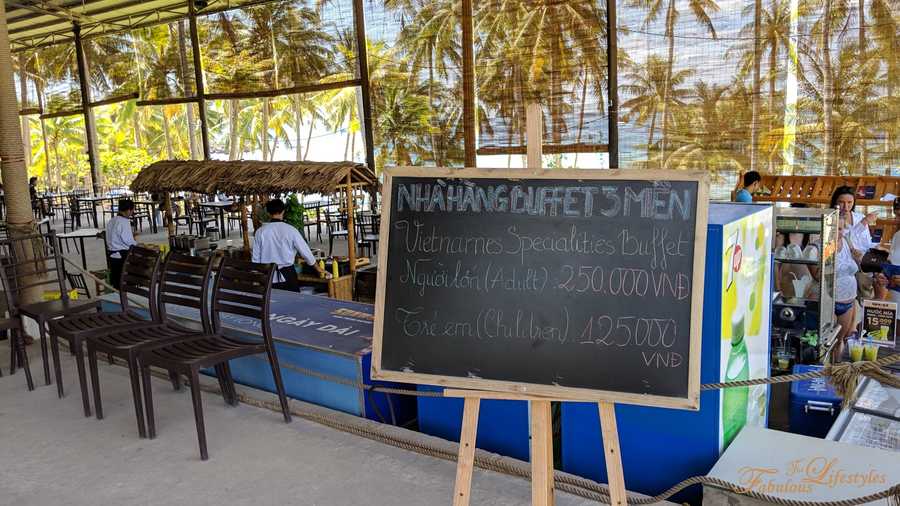 NHÀ HÀNG BUFFET 3 MIỀN
Vietnames Specialities Buffet
Người lớn (Adult) : 250.000 VNĐ
Trẻ em (Children) : 125.000
VNĐ
NGÀY DÀI
NƯỚC MÍA
15.000
The
Fabulous Lifestyles